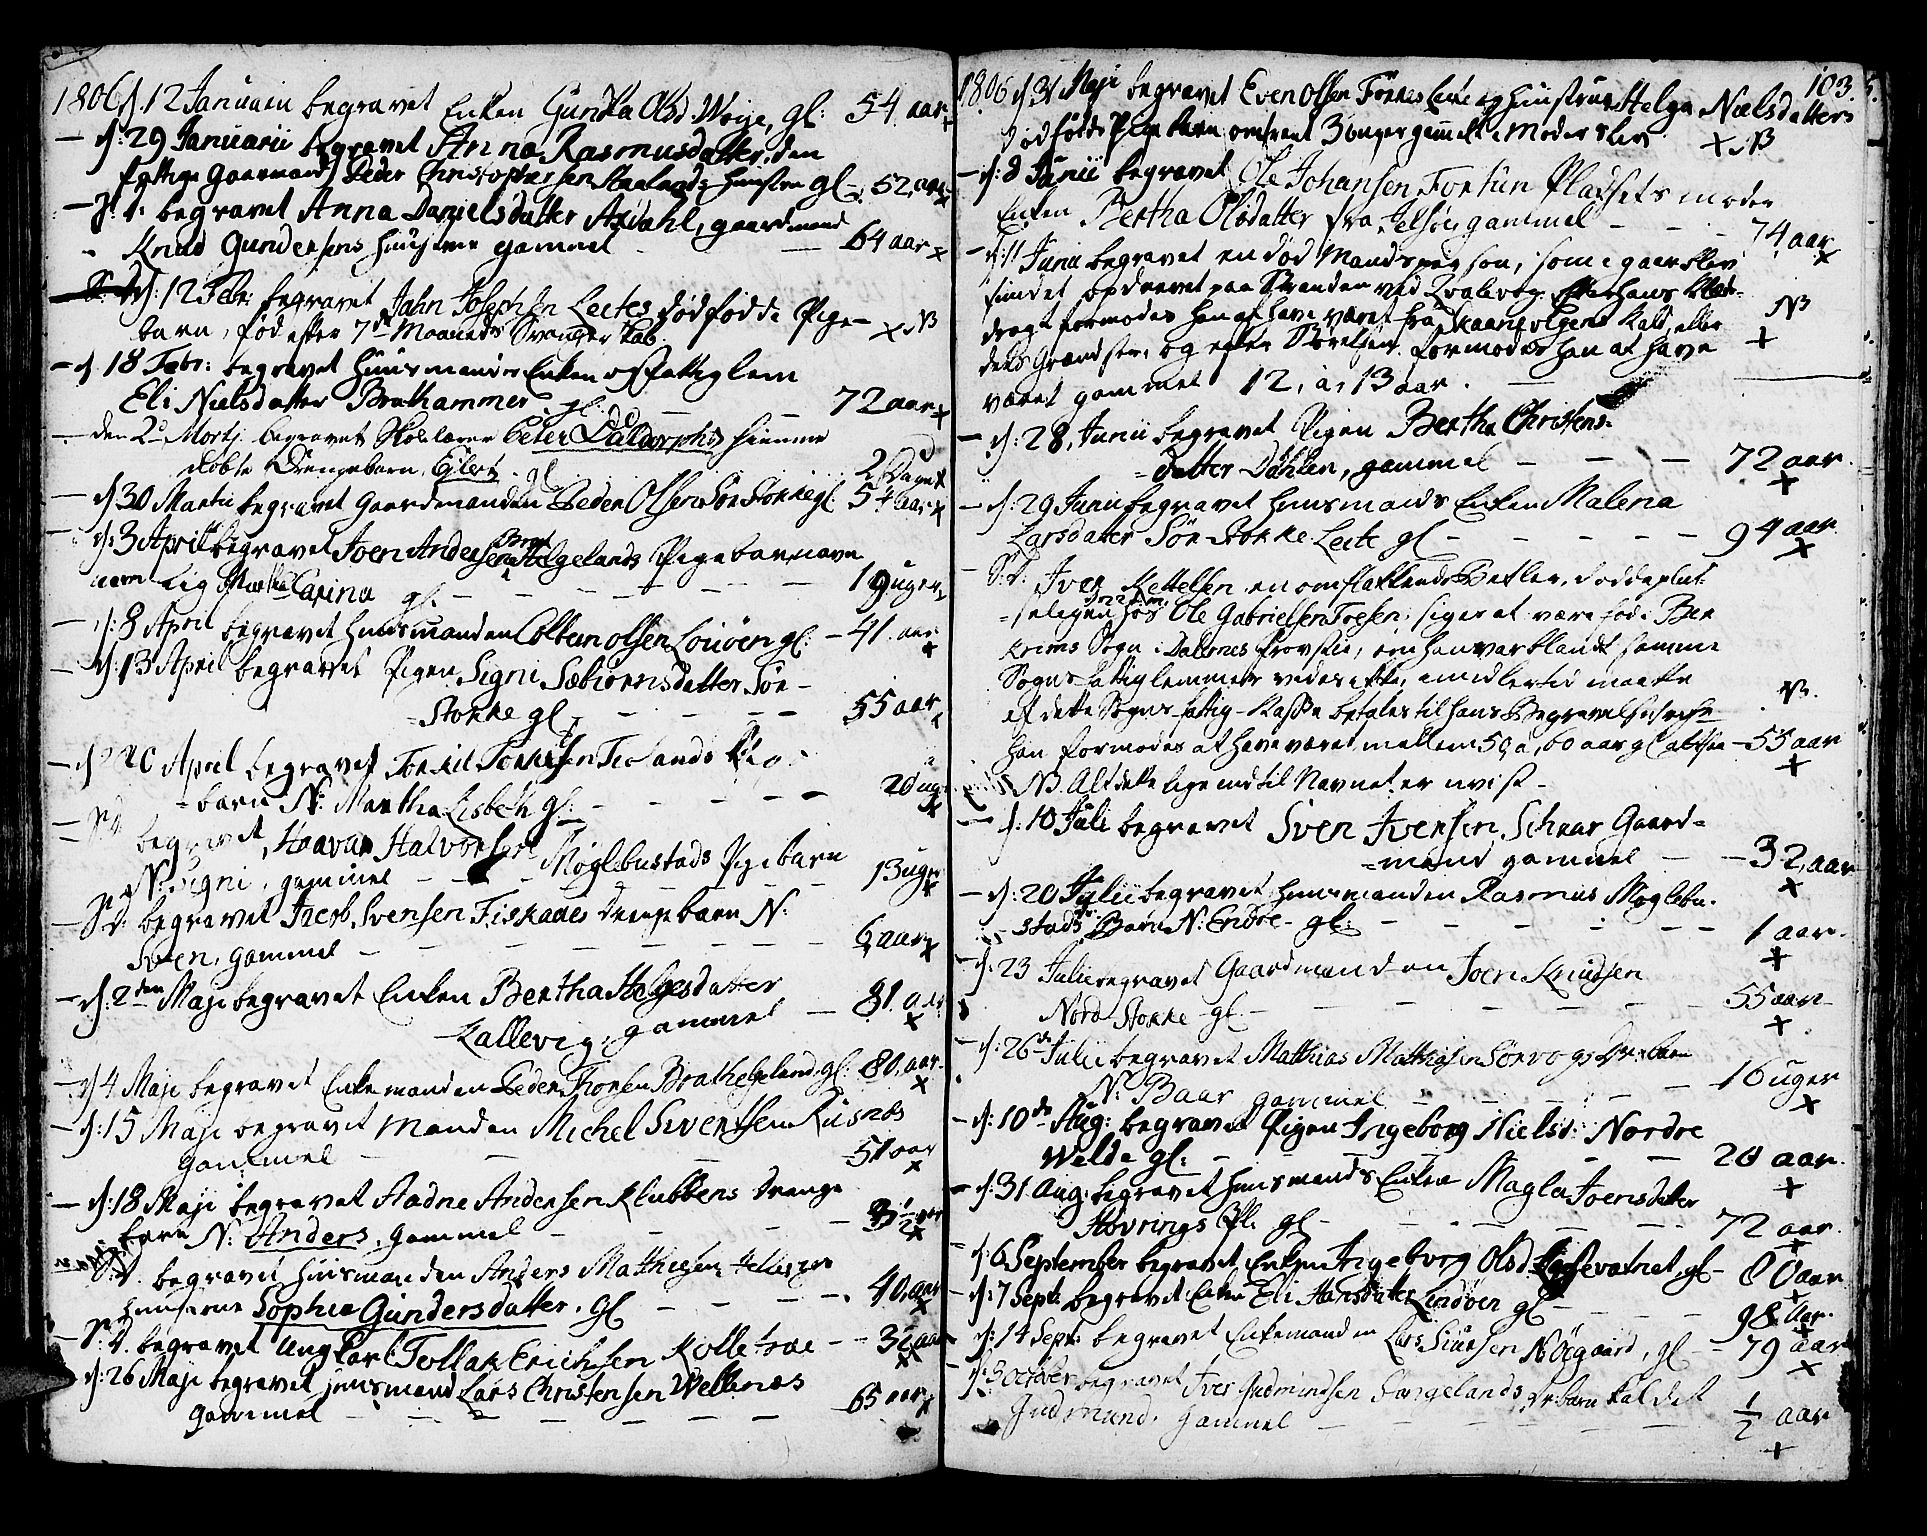 1806 d. 12 Januarii begravet Enken Gunilla Olsd. Woije, gl: 54 aar
- d: 29 Januarii begravet Anna Rasmusdatter, den
fattige Gaarmand Peder Christophersen Aalands Hustru gl- 52 aar
S: D. begravet Anna Danielsdatter Axdahl, gaardmand
Knud Gundersens Hustrue gammel - 64 aar
d: 12 Febr: begravet Jahn Josephsen Leetes dødfødde Pige-
barn, fød efter 7de Maaneds Svangerskab. NB
- d. 18 Febr: begravet Huusmands Enken og Fattiglem
Eli Nielsdatter Brathammer, gl. - 72 aar
- den 2d Martj begravet Skolelærer Peter Daldorphs hiemme
døbte Drengebarn, Eilert. gl 2 Dage
- d: 30 Martii begravet Gaardmanden Peder Olsen Sør Stokke gl. 54 aar
- d: 3 April begravet Joen Andersen Brat Helgelands Pigebarn navn
nem lig Carina gl. - 19 uger
- d: 8 April begravet Huusmanden Colbein Olsen Louøen gl: - 41. aar
- d: 13 April begravet Pigen Signi Sæbiørnsdatter Sør-
=Stokke gl - 55 aar
- d: 20 April begravet Torkil Torkilsen Tiolands Pige
=barn N: Martha Lisbeth gl: - 20 ug.
- S: D. begravet, Haavar Halvorsens Møglebustads Pigebarn
N: Signi, gammel - 13 uger
- S: D: begravet Jacob Svensen Fiskaaes Drengebarn N:
Sven, gammel - 6 aar
- d: 2den Maji begravet Enken Bertha Helgesdatter
Kallevig, gammel - 81. aar
- d 4 Maji begravet Enkemanden Peder Thorsen Brathelgeland, gl: 80, aar
- d: 15 Maji begravet Manden Michel Sivertsen Risnæs
gammel - 51 aar
- d: 18 Maji begravet Aadne Andersen Klubbens Drenge
barn N: Anders, gammel - 3 1/2 aar
S: D. begravet Huusmanden Anders Mathiesen
Hustrue Sophia Gundersdatter, gl - 40, aar
- S: D. begravet Ungkarl Tollak Erichsen Kolletrae - 32 aar
d: 26 Maji begravet Huusmand Lars Christensen Wellenæs
gammel - 65 aar
103.
1806 d 31 Maji begravet Even Olsen Førres Leite og Hustrue Helga Nielsdatters
dødfødde Pige barn omtrent 3 uger gammelt i Moders Liv NB
- d: 8 Junii begravet Ole Johansen Fortun Pladsets moder
Enken Bertha Olsdatter fra Jelsøe, gammel - 74, aar
- d: 11 Junii begravet en død Mandsperson, som i gaar blev
fundet opdrevet paa Stranden ved Qvalevog. Efter hans klæde-
dragt formodes han at have været fra Skaanevigens Kald, eller
dets Grændser, og efter Størrelsen formodes han at have NB
været gammel 12, á, 13 aar.
- d: 28, Junii begravet Pigen Bertha Christens=
=datter Dahlen, gammel - 72 aar.
- d: 29 Junii begravet Huusmands Enken Malena
Larsdatter Sør Stokke Leite gl - 94 aar
- S: D: Iver Kettelsen, en omflakkende Betler, døde plut-
=seligen hos Ole Gabrielsen Toesen, siger at være fød i Ber
kreims Sogn i Dalernes Provstie, om han var blandt samme
Sogns Fattiglemmer vides ikke, imidlertid maatte
af dette Sogns Fattig-Kasse betales til hans Begravelse NB.
han formodes at have været mellem 50, á, 60 aar gl - 55 aar
NB. Alt dette lige ind til Navnet er uvist -
- d: 10 Juli begravet Sven Iversen Schaar Gaard=
=mand gammel - 32, aar
- d: 20 Julii begravet Huusmanden Rasmus Moglebu-
stads Barn N: Endre - gl: - 1 aar.
- d: 23 Julii begravet Gaardmanden Joen Knudsen
Nord Stokke gl. - 55 aar
- d: 26de Julii begravet Mathias Mathiesen Sørvogs Dr. barn
N: Baar gammel - 16 uger
- d: 10de Aug: begravet Pigen Ingeborg Nielsd: Nordre
Welde gl: - 20 aar.
- d: 31 Aug: begravet Huusmands Enken Magla Joensdatter
Høvrings Pl: gl - 72 aar.
- d: 6 September begravet Enken Ingeborg Olsd. gl - 80 aar
- d: 7 Septb: begravet Enken Eli Hansdatter Lindøen gl - 98 Aar.
- d: 14 Septr: begravet Enkemanden Lars Siursen Nörgaard, gl - 79 aar
d: 5 October begravet Iver Gudmundsen Sangelands Dr. barn kaldet
Gudmund, gammel - 1/2 aar